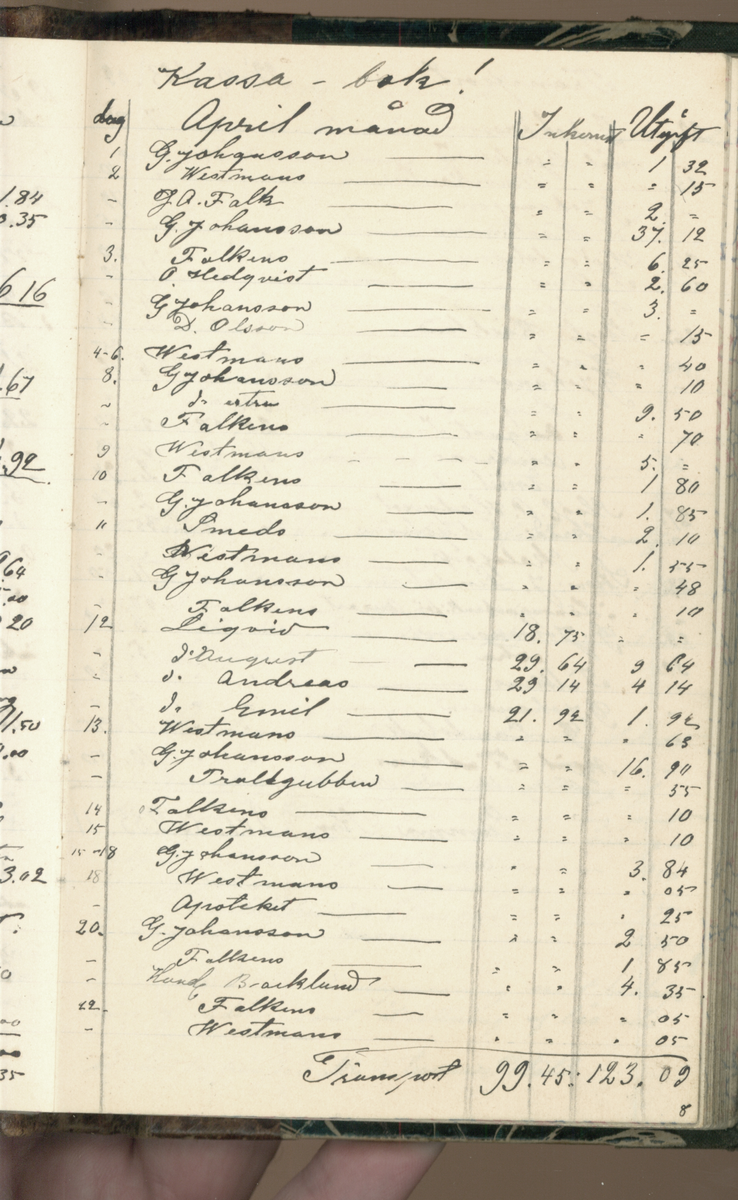 Kassa-bok!
dag April månad Inkomst Utgift
1 G. Johansson " " 1 32
2 Westmans " " " 15
- J. A. Falk " " 2. "
- G. Johansson " " 37. 12
3. Falkens " " 6. 25
- O. Hedqvist " " 2. 60
- G Johansson " " 3. "
- D. Olsson " " " 15
4-6. Westmans " " " 40
8. G Johansson " " " 10
- d:o extra " " 9. 50
- Falkens " " " 70
9 Westmans " " 5. "
10 Falkens " " 1 80
- G. Johansson " " 1. 85
11 Smeds " " 2. 10
- Westmans " " 1. 55
- G Johansson " " " 48
- Falkens " " " 10
12 Liqvid 18. 75 " "
- d:o August 29. 64 9 64
- d:o Andreas 29 14 4 14
- d:o Emil 21. 92 1. 92
13. Westmans " " " 63
- G. Johansson " " 16. 90
- Trallgubben 55
14 Falkens " " " 10
15 Westmans " " " 10
15-18 G. Johansson " " 3. 84
18 Westmans " " " 05
- Apoteket " " " 25
20. G. Johansson " " 2 50
- Falkens " " 1 85
- Backlund " " 4. 35
22. Falkens " " " 05
- Westmans " " " 05
Transport 99. 45: 123. 09
8
1.84
0.35
616
.67
.92
64
20
1.50
3.02
35